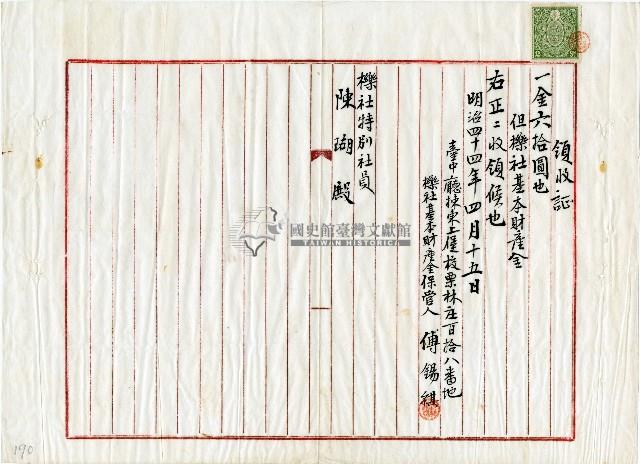 領收証
一金六拾圓也
但櫟社基本財產金
右正ニ收領候也
明治四十四年四月十五日
臺中廳揀東上堡校栗林庄百拾八番地
櫟社基本財產金保管人 傅錫祺
櫟社特別社員
陳瑚殿
國史館臺灣文獻館
TAIWAN HISTORICA
190